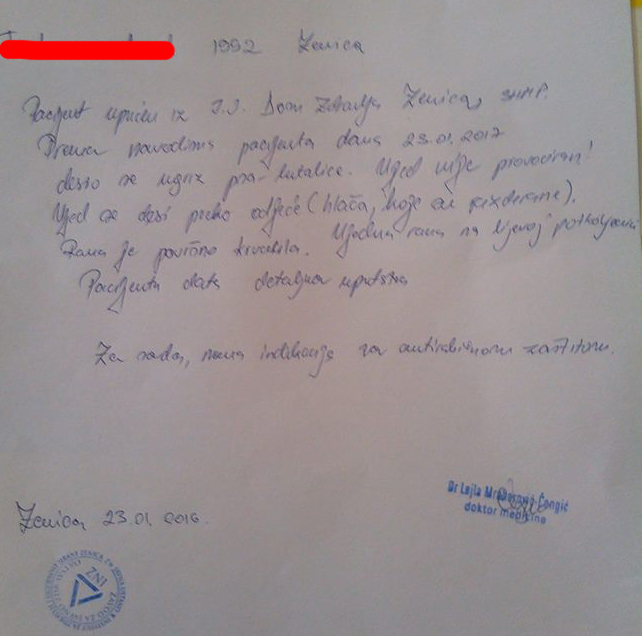 1992 Zenica
Pacijent upućen iz J.J. Dom Zdravlja Zenica, SHMP.
Prema navodima pacijenta dana 23.01.2017
desio se ugriz psa-lutalice. Ujed nije provociran!
Ujed se desi preko odjeće (hlača, koje su rasderane).
Rana je površno krvarila. Ujedna rana na lijevoj potkoljenici
Pacijentu data detaljna uputstva
Za sada, nema indikacija za antirabičnom zaštitom.
Dr Lejla Čengić
doktor medicine
Zenica 23.01.2016.
ZNI